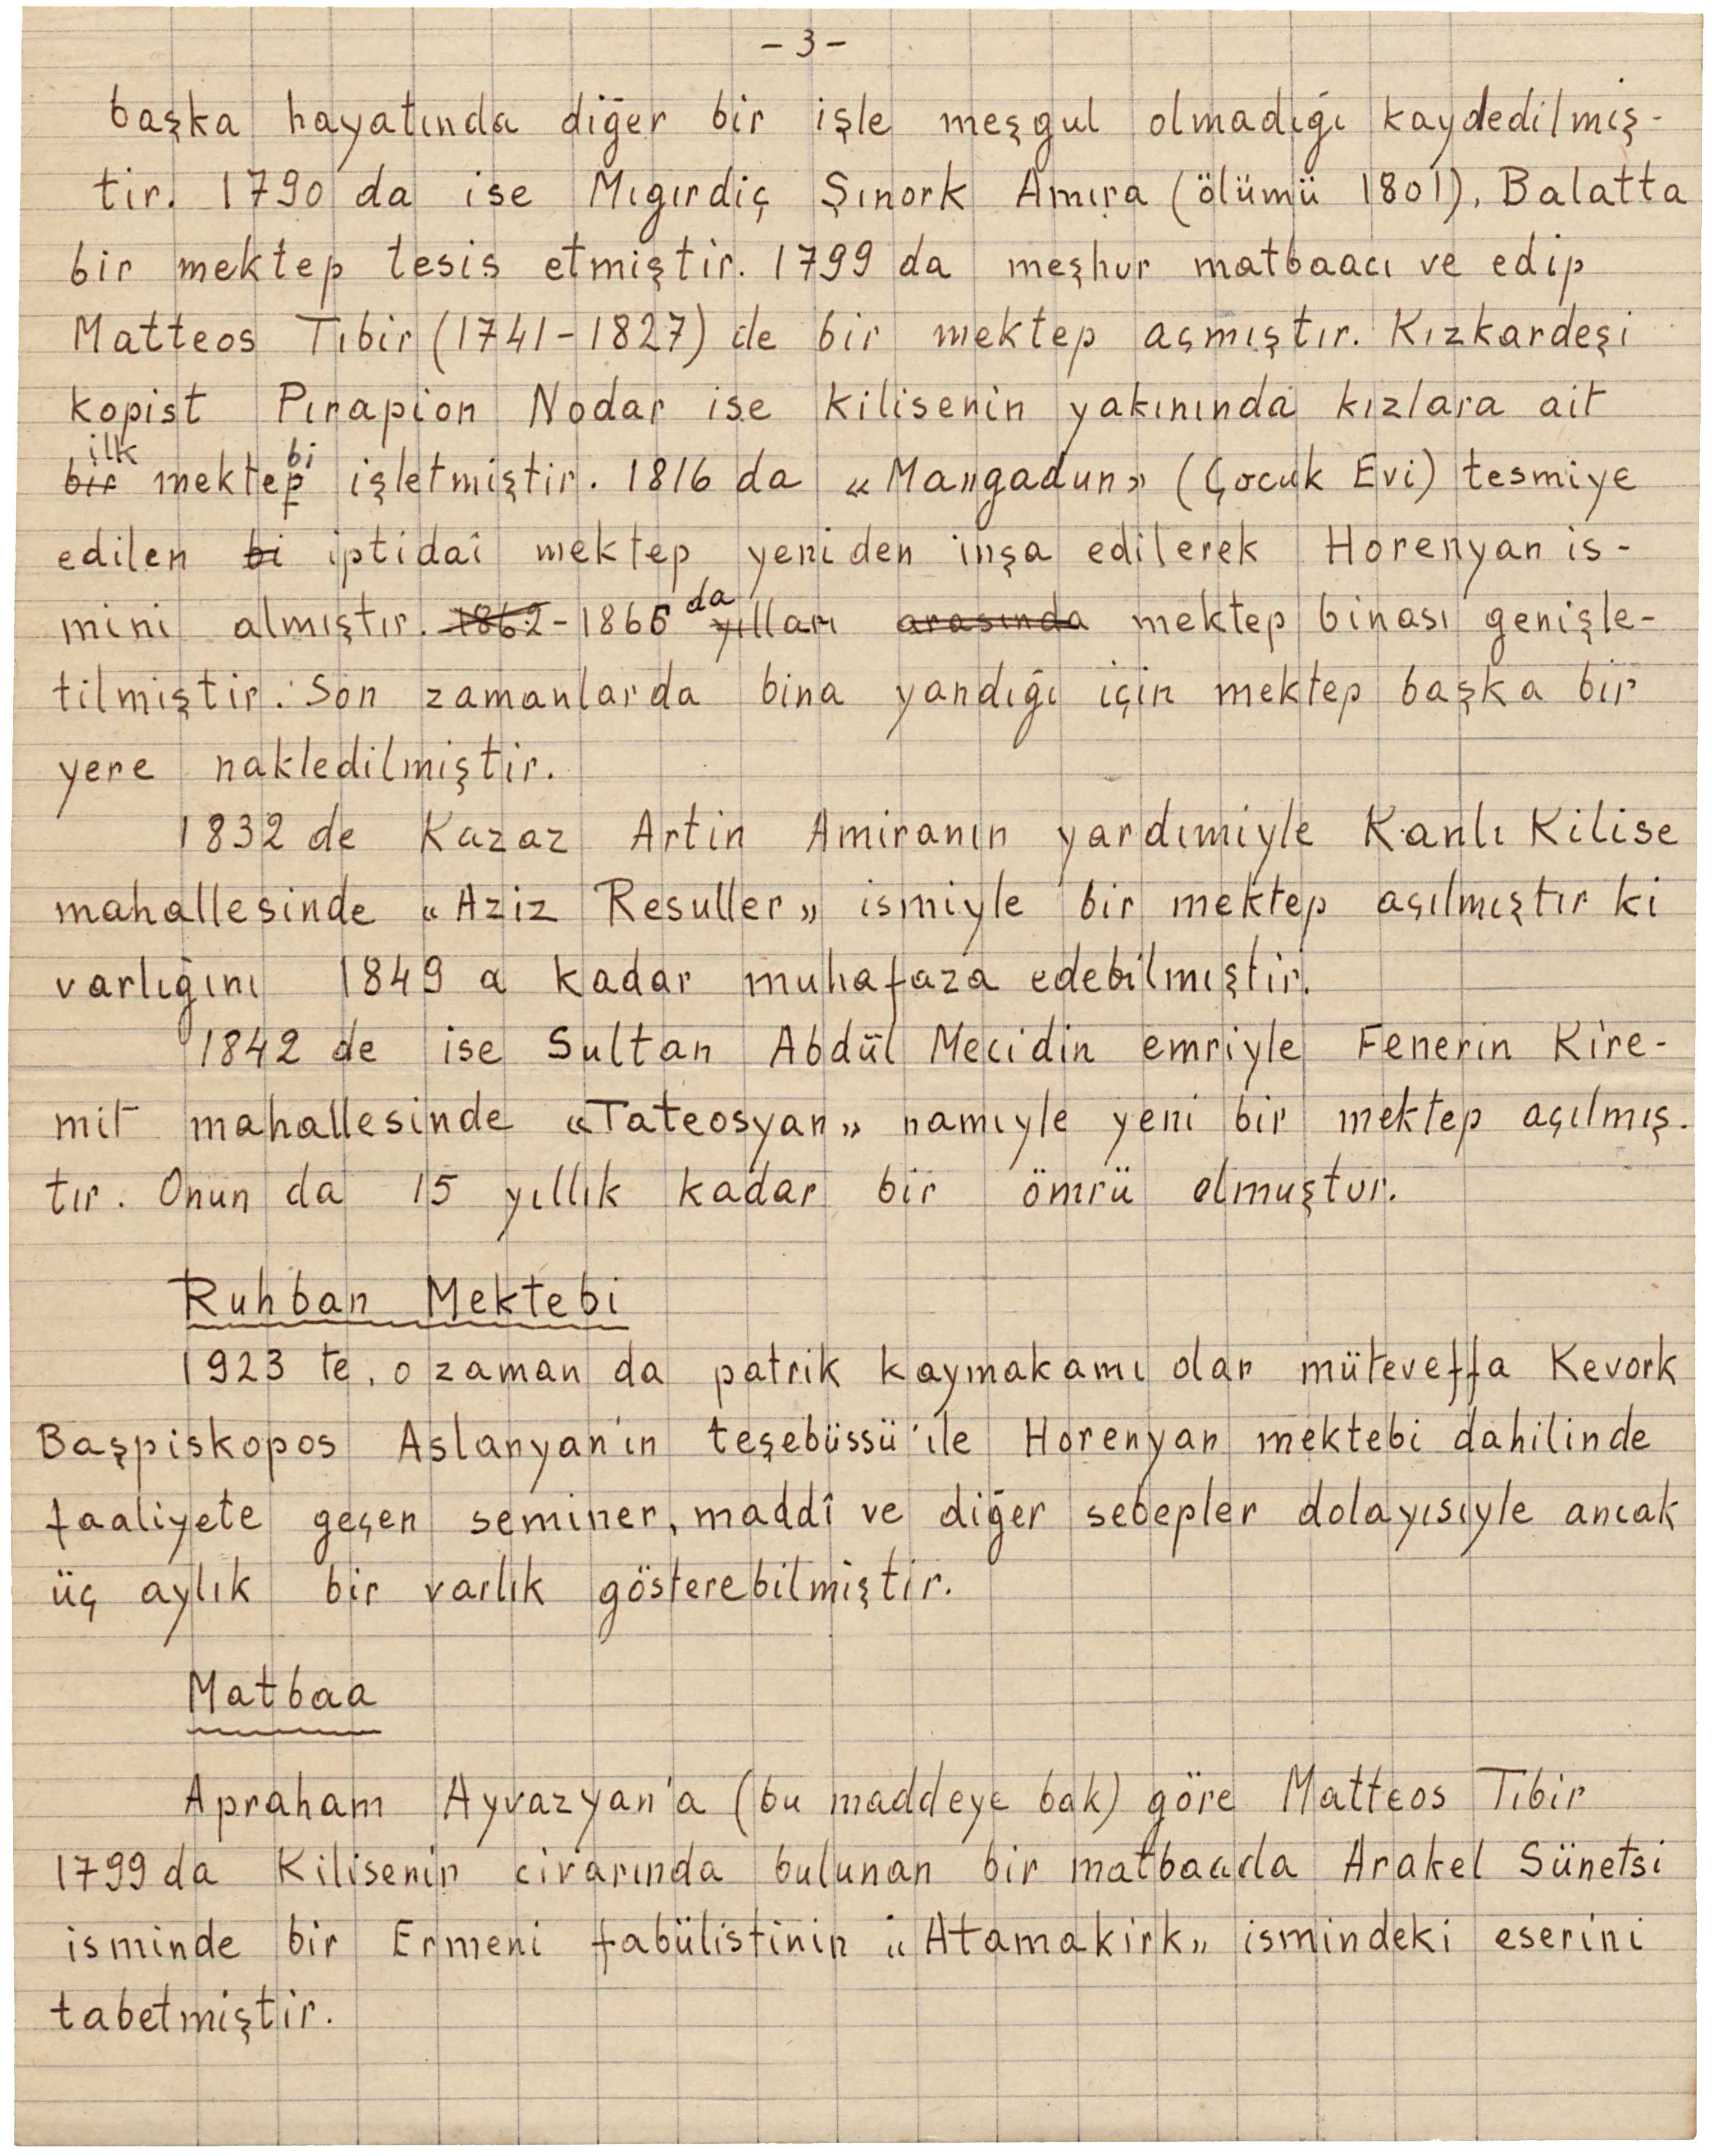 - 3 -
başka hayatında diğer bir işle meşgul olmadığı kaydedilmiş-
tir. 1790 da ise Mıgırdiç Şınork Amıra (ölümü 1801), Balatta
bir mektep tesis etmiştir. 1799 da meşhur matbaacı ve edip
Matteos Tıbir (1741-1827) de bir mektep açmıştır. Kızkardeşi
kopist Pırapion Nodar ise kilisenin yakınında kızlara ait
ilk bi
bir mektep işletmiştir. 1816 da «Mangadun» (Çocuk Evi) tesmiye
edilen bi iptidaî mektep yeniden inşa edilerek Horenyan is-
da
mini almıştır. 1862-1866 yılları arasında mektep binası genişle-
tilmiştir. Son zamanlarda bina yandığı için mektep başka bir
yere nakledilmiştir.
1832 de Kazaz Artin Amiranın yardımiyle Kanlı Kilise
mahallesinde «Aziz Resuller» ismiyle bir mektep açılmıştır ki
varlığını 1849 a kadar muhafaza edebilmiştir.
1842 de ise Sultan Abdül Mecidin emriyle Fenerin Kire-
mit mahallesinde «Tateosyan» namıyle yeni bir mektep açılmış-
tır. Onun da 15 yıllık kadar bir ömrü olmuştur.
Ruhban Mektebi
1923 te, o zaman da patrik kaymakamı olan müteveffa Kevork
Başpiskopos Aslanyan'ın teşebüssü ile Horenyan mektebi dahilinde
faaliyete geçen seminer, maddî ve diğer sebepler dolayısıyle ancak
üç aylık bir varlık gösterebilmiştir.
Matbaa
Apraham Ayvazyan'a (bu maddeye bak) göre Matteos Tıbir
1799 da Kilisenin civarında bulunan bir matbaada Arakel Sünetsi
isminde bir Ermeni fabülistinin «Atamakirk» ismindeki eserini
tabetmiştir.